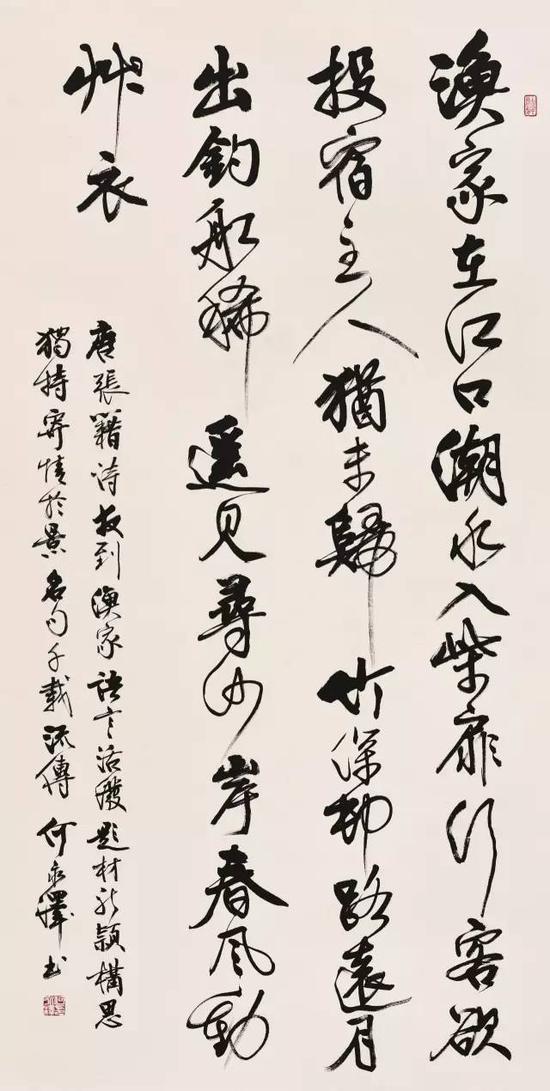 漁家在江口潮水入柴扉行客欲
投宿主人猶未歸竹深邨路遠月
出釣船稀遥見尋沙岸春風動
艸衣
唐張籍詩夜到漁家語言活潑題材新穎構思
獨特寄情於景名句千載流傳何澤書